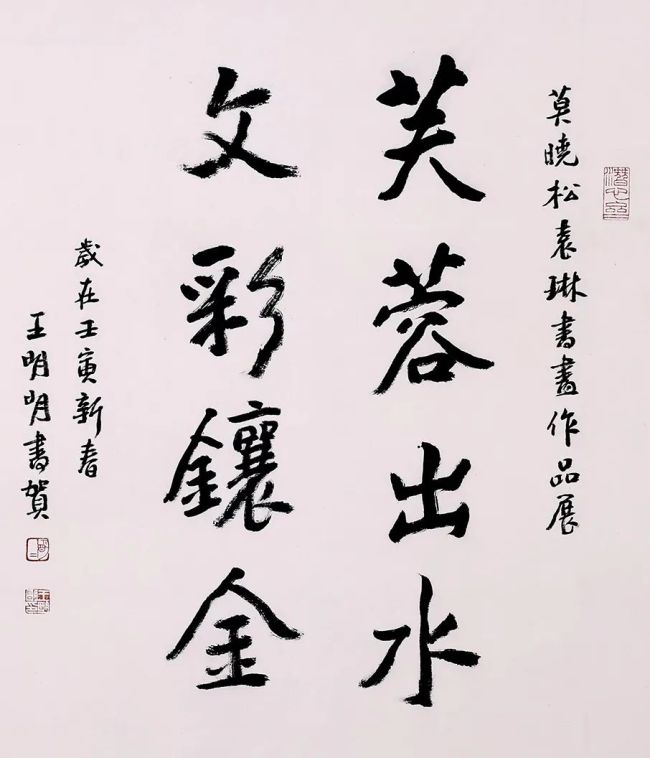 莫曉松袁琳書畫作品展
芙蓉出水
文彩鑲金
歲在壬寅新春
王明明書賀